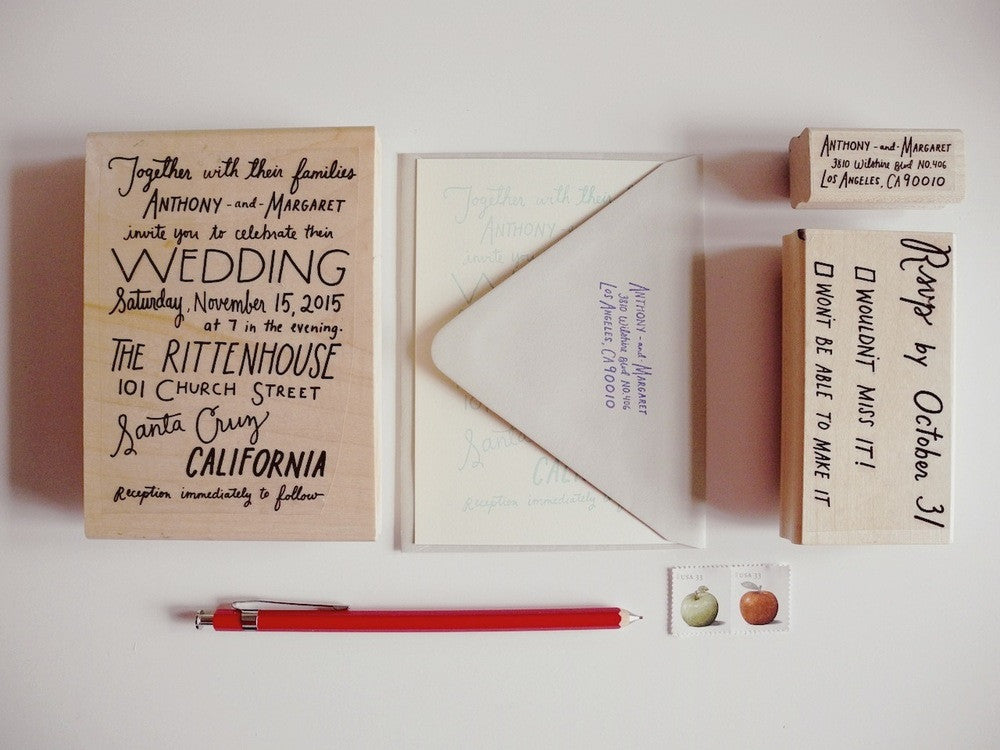 Together with their families
ANTHONY -and- MARGARET
invite you to celebrate their
WEDDING
Saturday, November 15, 2015
at 7 in the evening.
THE RITTENHOUSE
101 CHURCH STREET
Santa Cruz
CALIFORNIA
Reception immediately to follow
Together with their
ANTHONY -
invite you
W
10
Santa
CAL
Reception immediately to
ANTHONY -and- MARGARET
3810 Wilshire Blvd NO.406
LOS ANGELES, CA 90010
ANTHONY -and- MARGARET
3810 Wilshire Blvd NO.406
LOS ANGELES, CA 90010
Rsvp by October 31
WOULDN'T MISS IT!
WON'T BE ABLE TO MAKE IT
USA 33
USA 33